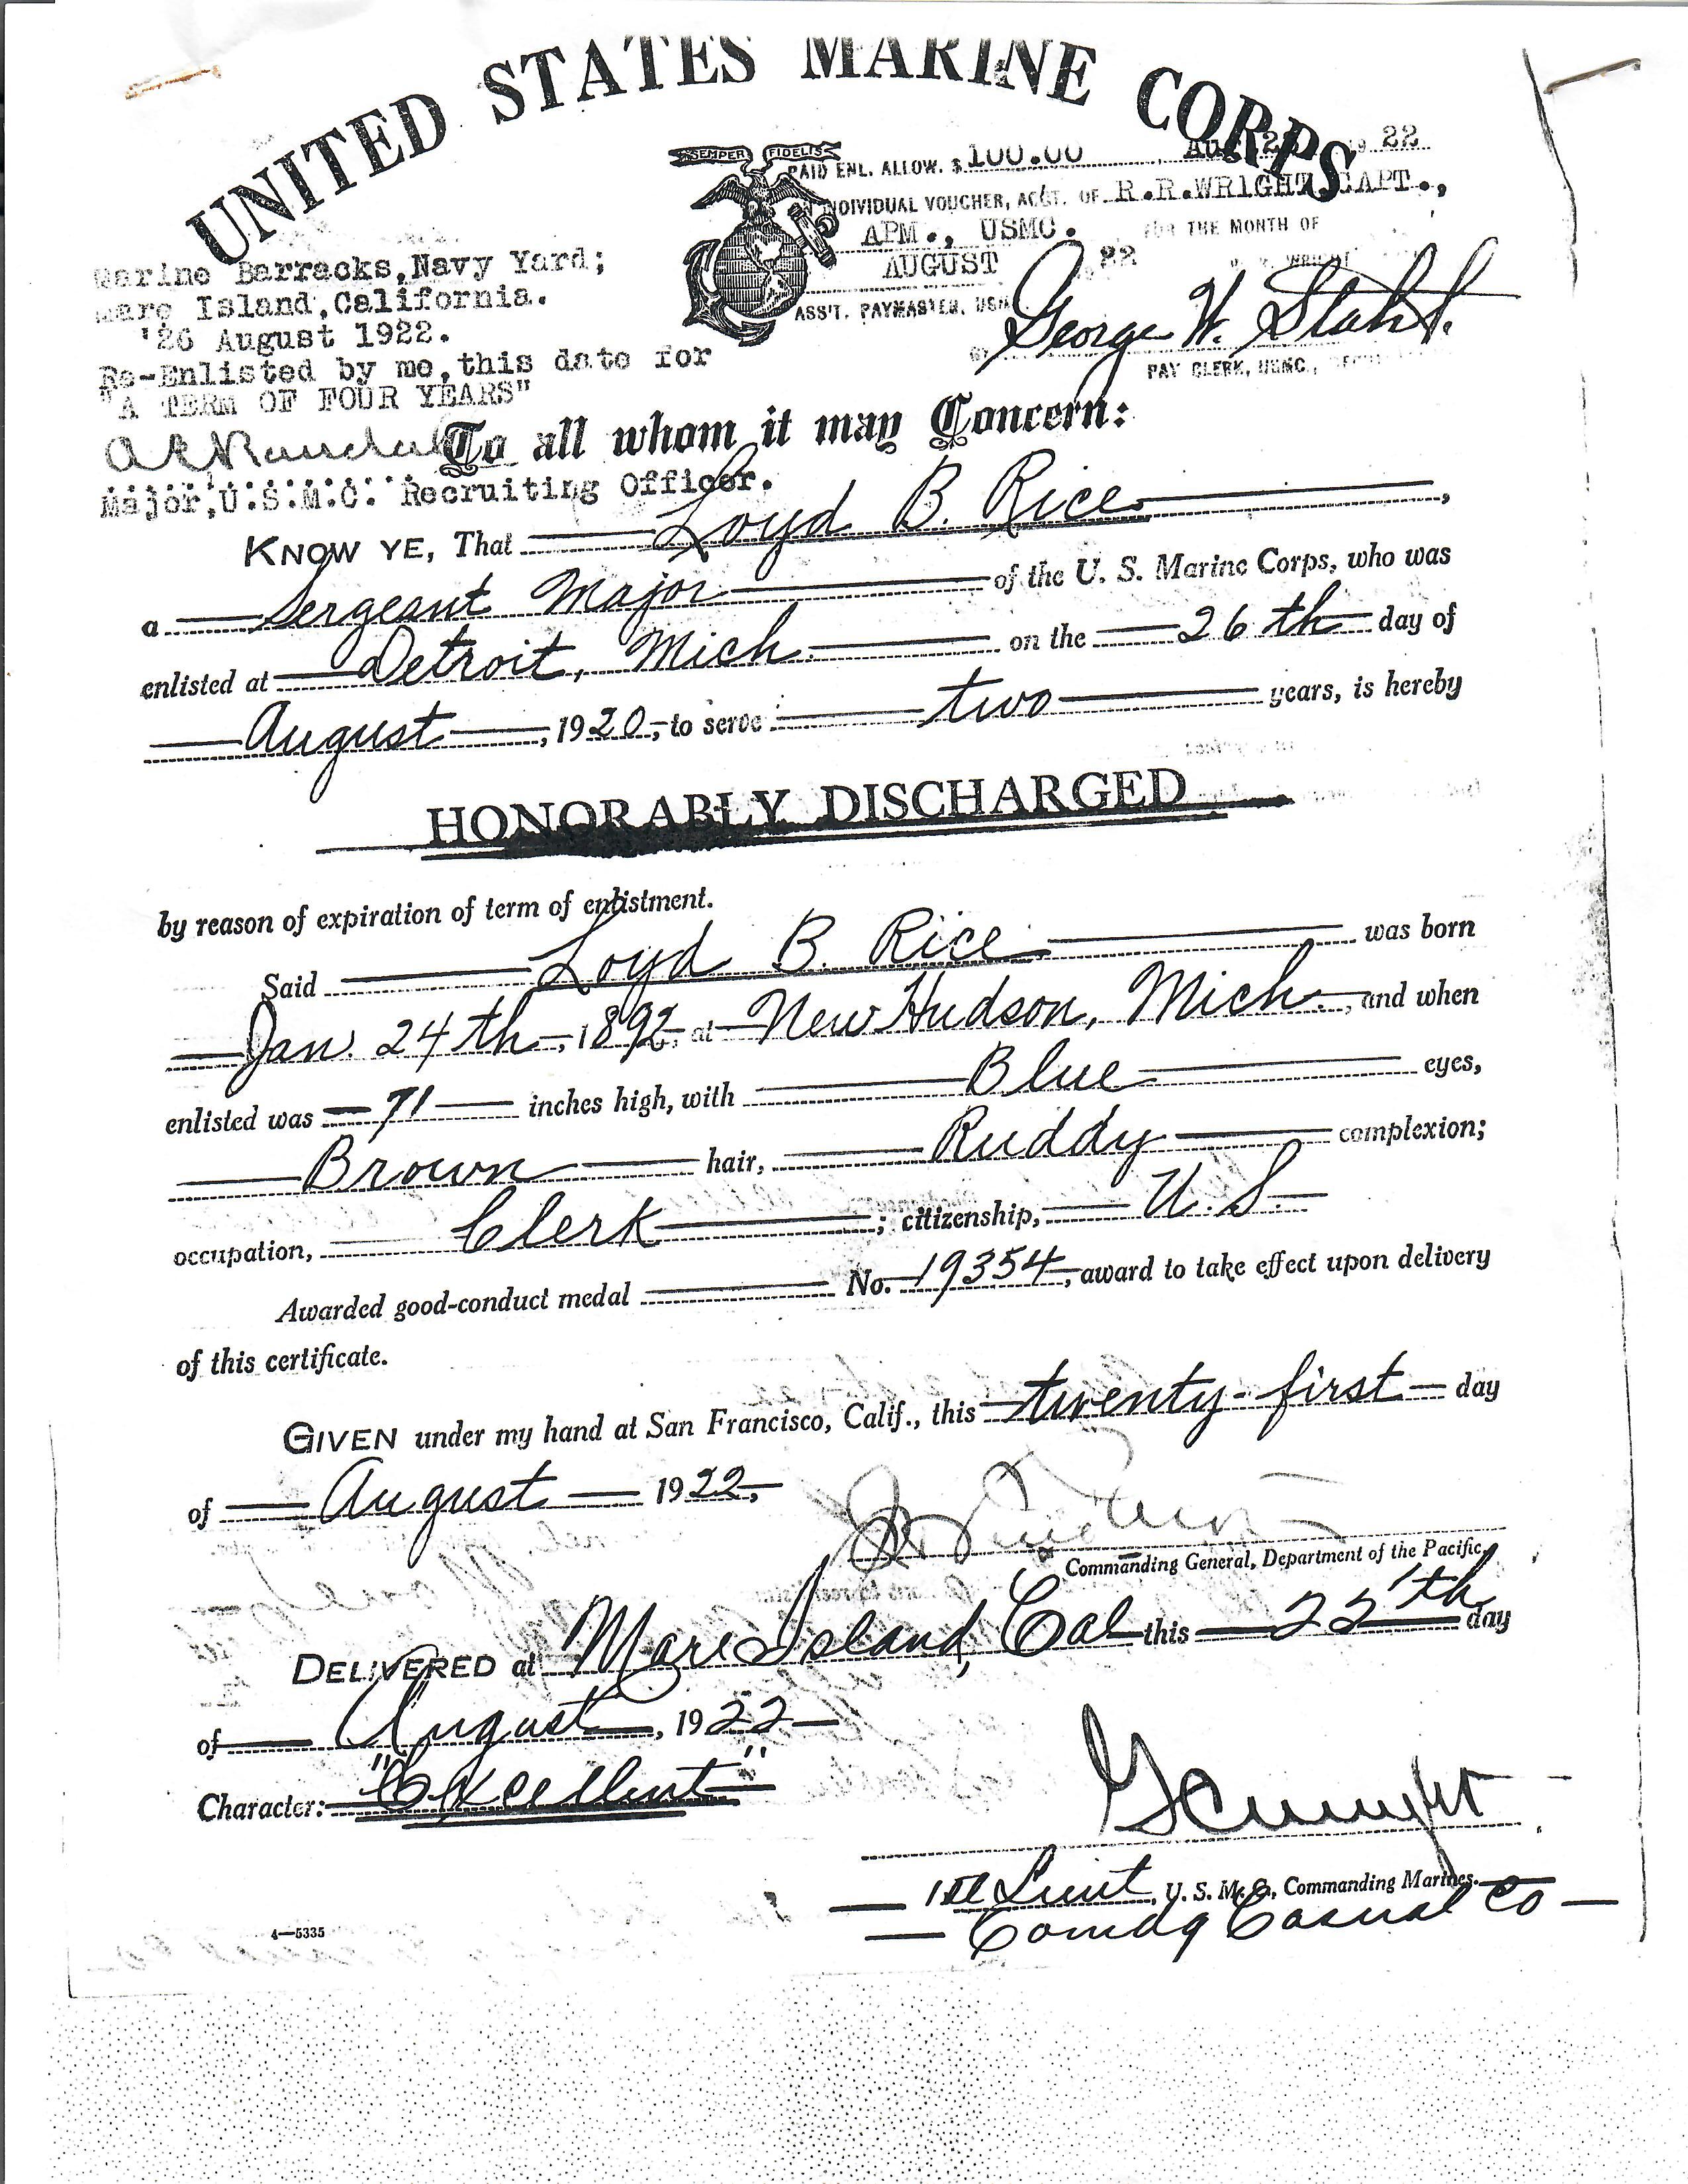 UNITED STATES MARINE CORPS
SEMPER FIDELIS
PAID ENL. ALLOW. $ 100.00, Aug. 22
INDIVIDUAL VOUCHER, ACCT. OF R.R.WRIGHT, CAPT.,
APM., USMC. FOR THE MONTH OF
AUGUST 22
ASS'T. PAYMASTER, USMC
George W. Stahl
PAY CLERK, USMC.,
Marine Barracks, Navy Yard;
Mare Island, California.
'26 August 1922.
Re-Enlisted by me, this date for
"A TERM OF FOUR YEARS"
Major, U.S.M.C. Recruiting Officer.
To all whom it may Concern:
KNOW YE, That Loyd B. Rice,
a Sergeant Major of the U. S. Marine Corps, who was
enlisted at Detroit, Mich. on the 26th day of
August, 1920, to serve two years, is hereby
HONORABLY DISCHARGED
by reason of expiration of term of enlistment.
Said Loyd B. Rice was born
Jan. 24th, 1892, at New Hudson, Mich., and when
enlisted was 71 inches high, with Blue eyes,
Brown hair, Ruddy complexion;
occupation, Clerk; citizenship, U.S.
Awarded good-conduct medal No. 19354, award to take effect upon delivery
of this certificate.
GIVEN under my hand at San Francisco, Calif., this twenty-first day
of August 1922,
Commanding General, Department of the Pacific.
DELIVERED at Mare Island, Cal this day
of August, 1922
Character: "Excellent"
1st Lieut, U. S. M. C., Commanding Marines.
Comdg Casual Co
4—5335